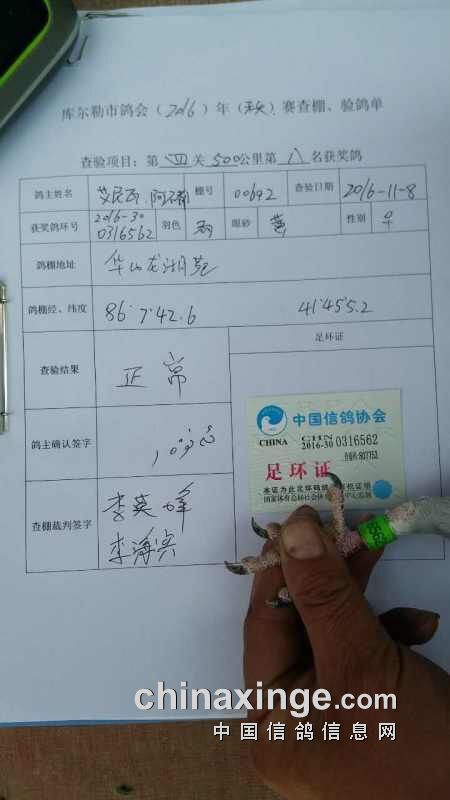 库尔勒市鸽会（2016）年（秋）赛查棚、验鸽单
查验项目：第 四 关 500公里第 八 名获奖鸽
鸽主姓名 棚号 00692 查验日期 2016-11-8
获奖鸽环号 2016-30 0316562 羽色 眼砂 黄 性别
鸽棚地址 华山龙湖苑
鸽棚经、纬度 86°7′42.6 41°45′5.2
查验结果 正常 足环证
鸽主确认签字
查棚裁判签字 李英峰
李海兵
中国信鸽协会
CHINA CHN 2016-30 0316562
足环证
chinaxinge.com
中国信鸽信息网